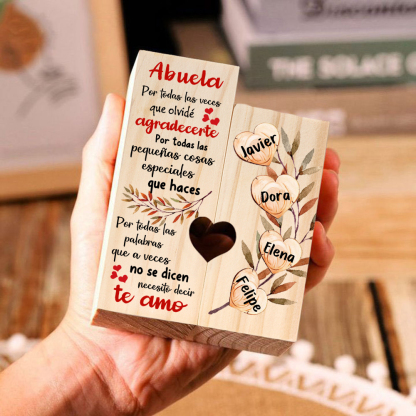 Abuela
Por todas las veces
que olvidé
agradecerte
Por todas las
pequeñas cosas
especiales
que haces
Por todas las
palabras
que a veces
no se dicen
necesito decir
te amo
Javier
Dora
Elena
Felipe
THE SOLACE O